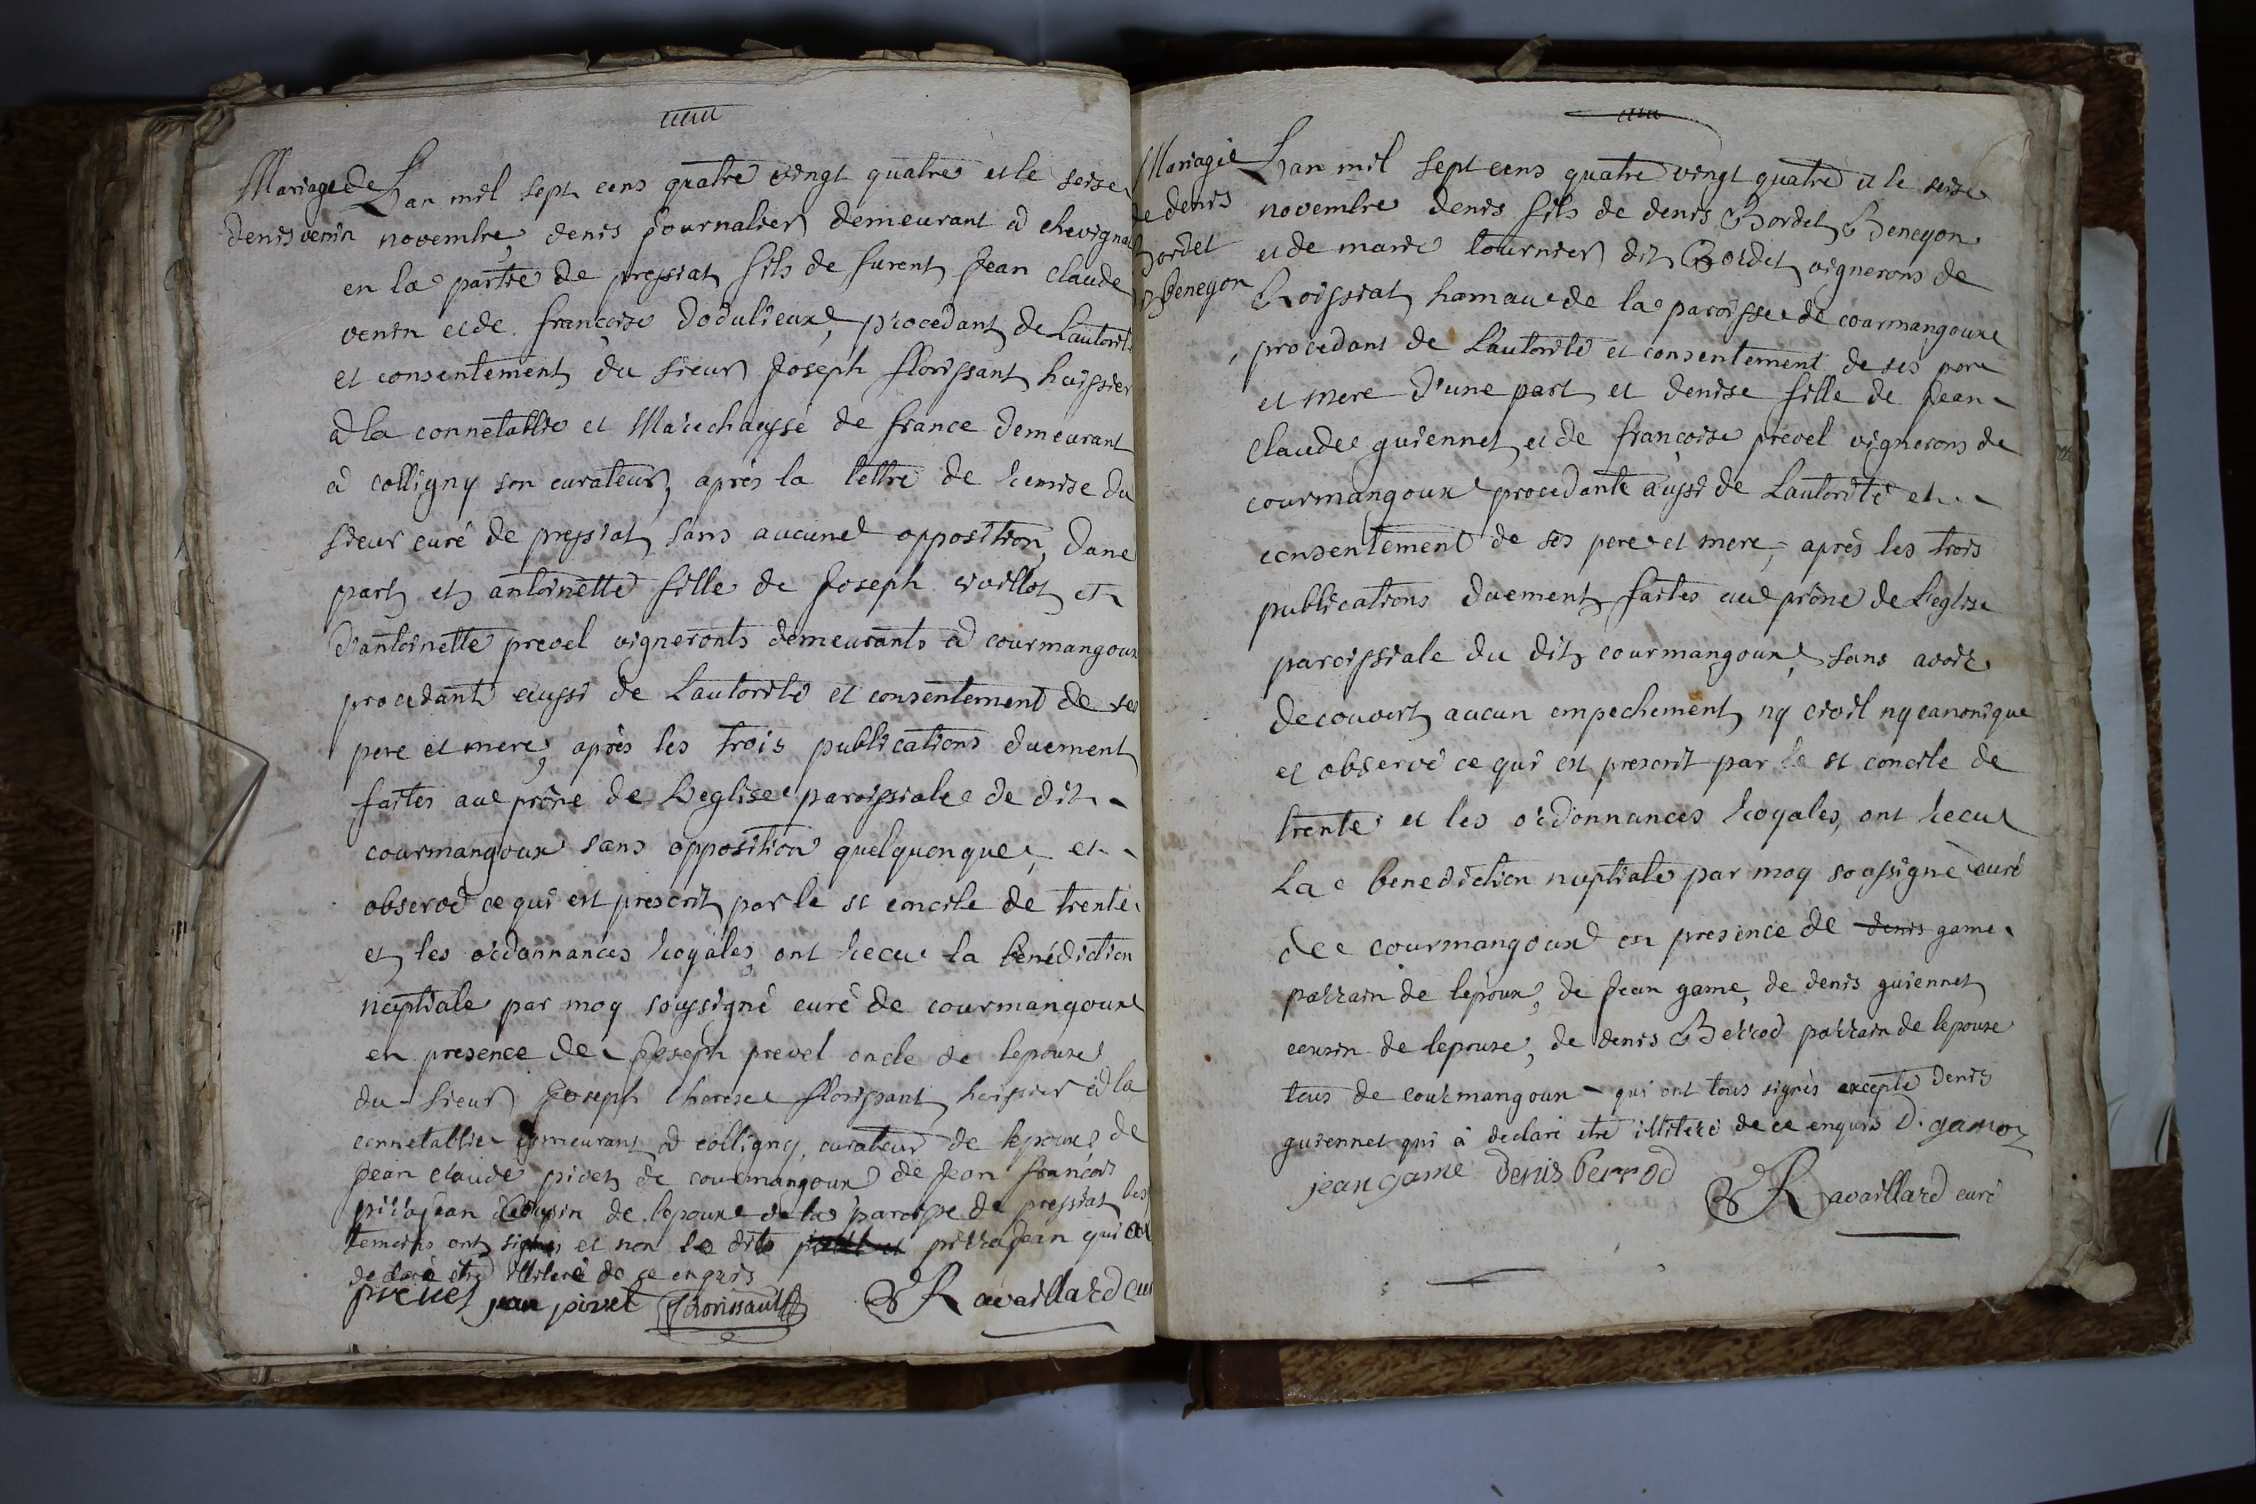 Mariage de
denis venin
Lan mil sept cens quatre vingt quatre et le seise
novembre, denis journalier demeurant a chevigna
en la partie de pressiat fils de furent Jean claude
venin et de françoise dodulieux, procedant de Lautorité
et consentement du sieur Joseph florissant huissier
a la connetablie et Marechaussé de france demeurant
a colligny son curateur, après la lettre de remise du
sieur curé de pressiat, sans aucune opposition, dune
part et antoinette fille de Joseph vvillot et
d'antoinette prevel vigneronts demeurants a courmangoux
procedante aussi de Lautorité et consentement de ses
pere et mere, après les trois publications duement
faites au prône de L'eglise paroissiale de dit
courmangoux sans opposition quelquonque, et
observé ce qui est prescrit par le st concile de trente
et les ordonnances royales, ont recu la bénédiction
nuptiale par moy soussigné curé de courmangoux
en presence de Joseph prevel oncle de lepouse
du sieur Joseph therese florissant huissier a la
connetablie demeurant a colligny, curateur de lepoux, de
Jean claude pivet de courmangoux de Jean françois
pirrajean cousin de lepoux de la paroisse de pressiat les
temoins ont signés et non le dit pirrajean qui a
declaré etre illiteré de ce enquis
prevel jean pivet florissant Ravaillard curé
Mariage
de denis
Bordet
Benegon
Lan mil sept cens quatre vingt quatre et le seise
novembre denis fils de denis Bordet Benegon
et de marie tournier dit Bordet vignerons de
Roissiat hamau de la paroisse de courmangoux
procedant de Lautorité et consentement de ses pere
et mere d'une part et denise fille de Jean
claude guiennet et de françoise prevel vignerons de
courmangoux procedante aussi de Lautorité et
consentement de ses pere et mere, après les trois
publications duement faites au prône de L'eglise
paroissiale du dit courmangoux, sans avoir
decouvert aucun empechement ny civil ny canonique
et observé ce qui est prescrit par le st concile de
trente et les ordonnances royales, ont recu
La benediction nuptiale par moy soussigné curé
de courmangoux en presence de denis game
parrain de lepoux, de Jean game, de denis guiennet
cousin de lepouse, de denis Berrod parrain de lepouse
tous de courmangoux qui ont tous signés excepté denis
guiennet qui a declaré etre illiteré de ce enquis D. gamoz
jean game denis berrod
Ravaillard curé